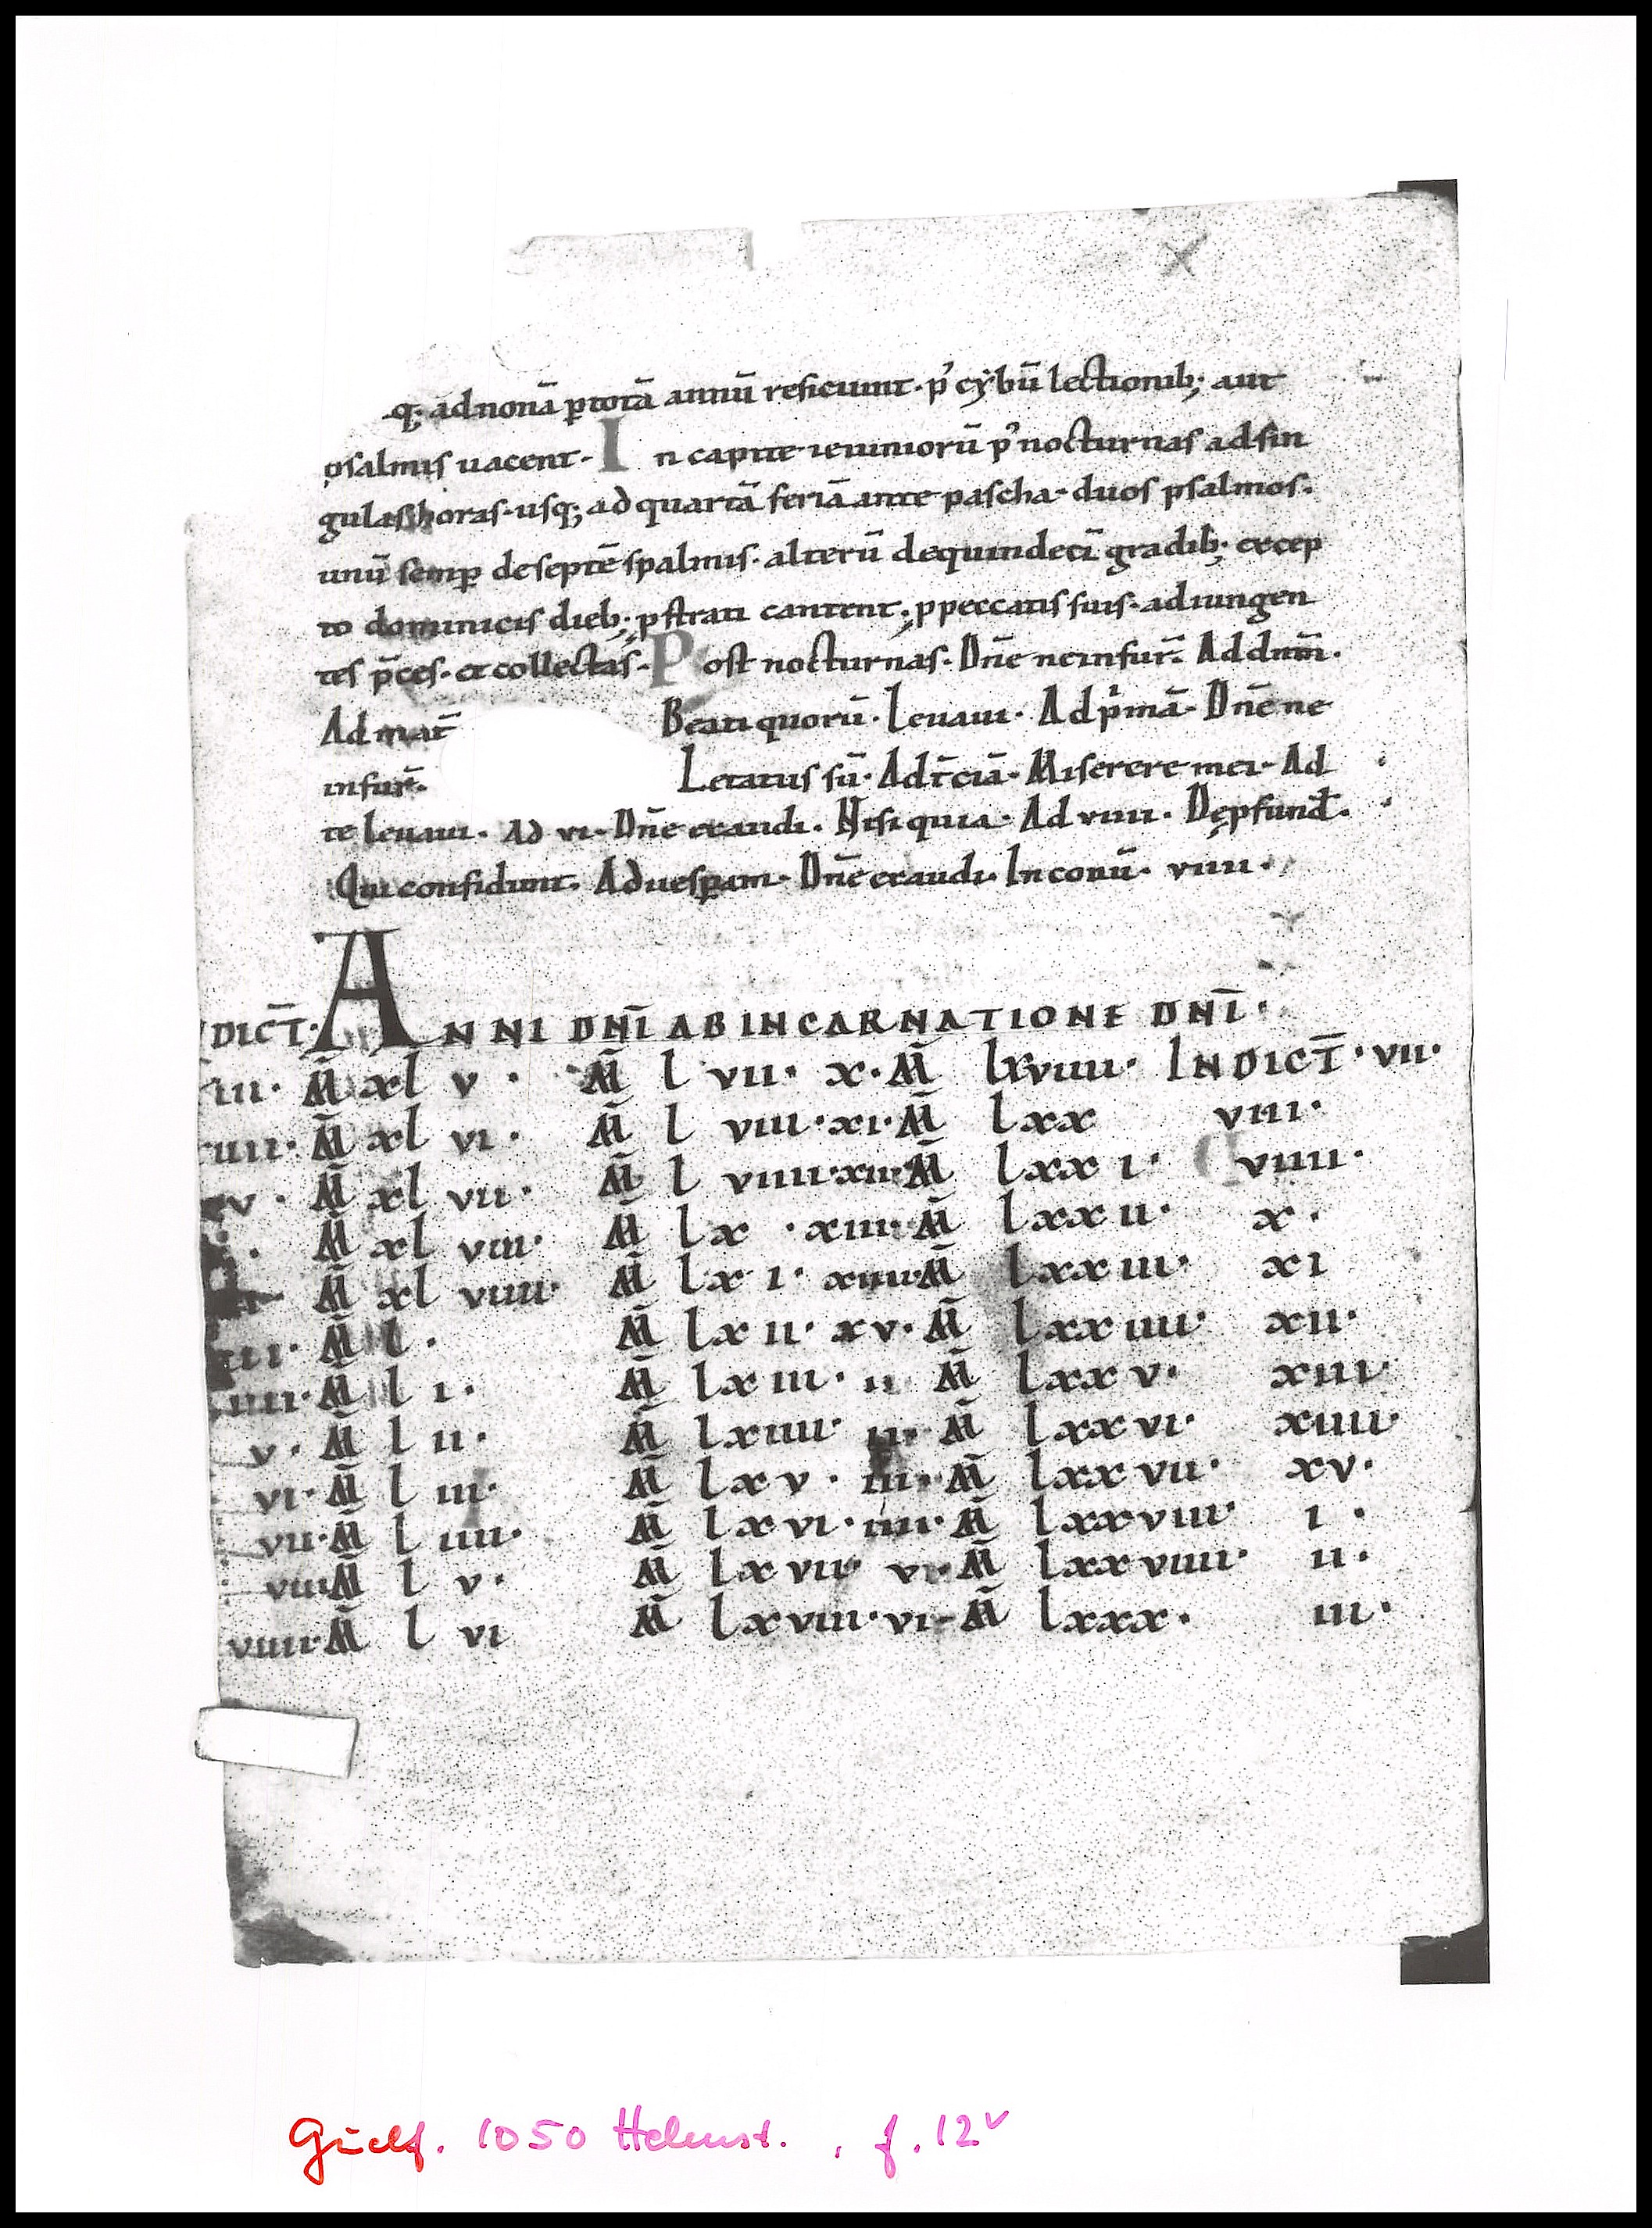 q; ad nonā ꝑ totā annū reficiunt· p᾽ cybū lectionib; aut
psalmis uacent· In capite ieiuniorū p᾽ nocturnas ad sin
gulas horas· usq; ad quartā feriā ante pascha· duos psalmos·
unū semꝑ de septē spalmis· alterū de quindecī gradib; excep
to dominicis dieb; pstrati cantent; p peccatis suis· adiungen
tes p̄ces· et collectas· Post nocturnas· Dn̄e ne in fur̄· Ad
Ad mat̄ Beati quorū· Leuaui· Ad pⁱmā· Dn̄e ne
in fur̄· Letatus sū· Ad t̄ciā· Miserere mei· Ad
te leuaui· Ad vi· Dn̄e exaudi· Nisi quia· Ad viiii· De ꝓfund̄·
Qui confidunt· Ad uesꝑam· Dn̄e exaudi· In conū· viiii·
DICT̄· ANNI DN̄I AB INCARNATIONE DN̄I·
iii· M̄ xl v· M̄ l vii· x· M̄ lxviiii· INDICT̄· vii·
iiii· M̄ xl vi· M̄ l viii· xi· M̄ lxx viii·
v· M̄ xl vii· M̄ l viiii· xii· M̄ lxx i· viiii·
M̄ xl viii· M̄ lx · xiii· M̄ lxx ii· x·
M̄ xl viiii· M̄ lx i· xiiii· M̄ lxx iii· xi
M̄ l· M̄ lx ii· xv· M̄ lxx iiii· xii·
iiii· M̄ l i· M̄ lx iii· M̄ lxx v· xiii·
v· M̄ l ii· M̄ lx iiii· ii· M̄ lxx vi· xiiii·
vi· M̄ l iii· M̄ lx v· iii· M̄ lxx vii· xv·
vii· M̄ l iiii· M̄ lx vi· iiii· M̄ lxx viii· i·
viii M̄ l v· M̄ lx vii· M̄ lxx viiii· ii·
viiii· M̄ l vi M̄ lx viii· vi· M̄ lxxx· iii·
Guelf. 1050 Helmst. , f. 12ᵛ